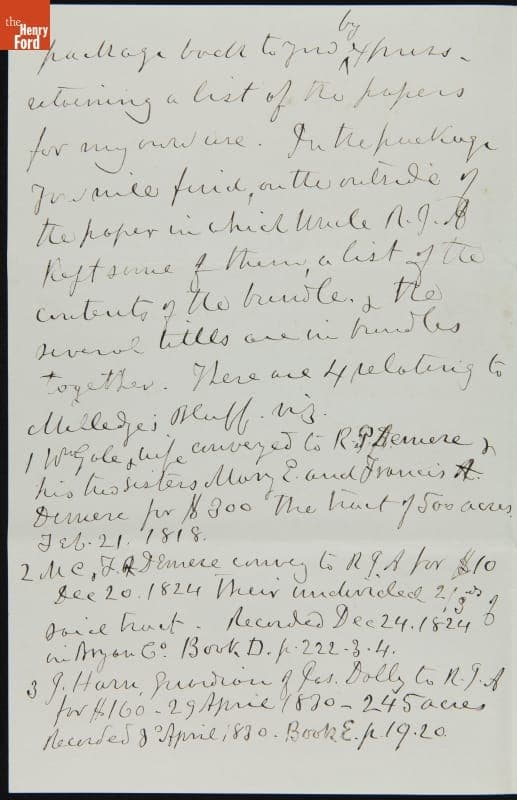 the
Henry
Ford
by
package back to you express -
retaining a list of the papers
for my own use. In the package
You will find, on the outside of
the paper in which Uncle R. J. A
kept some of them, a list of the
contents of the bundle, & the
several titles are in bundles
together. There are 4 relating to
Milledge's Bluff. viz.
1 Wm Gale & wife conveyed to R. P. Demere &
his two sisters Mary E. and Francis A.
Demere for $300 The tract of 500 acres.
Feb. 21. 1818.
2 M E, F A Demere convey to R J A for $10
Dec 20. 1824 Their undivided 2/3rds of
said tract. Recorded Dec 24. 1824
in Bryan Co. Book D. p. 222-3-4.
3 J. Harn, Guardian of Jas. Dolly to R. J. A
for $160 - 29 April 1830 - 245 acres
Recorded 8 April 1830. Book E. p 19.20.